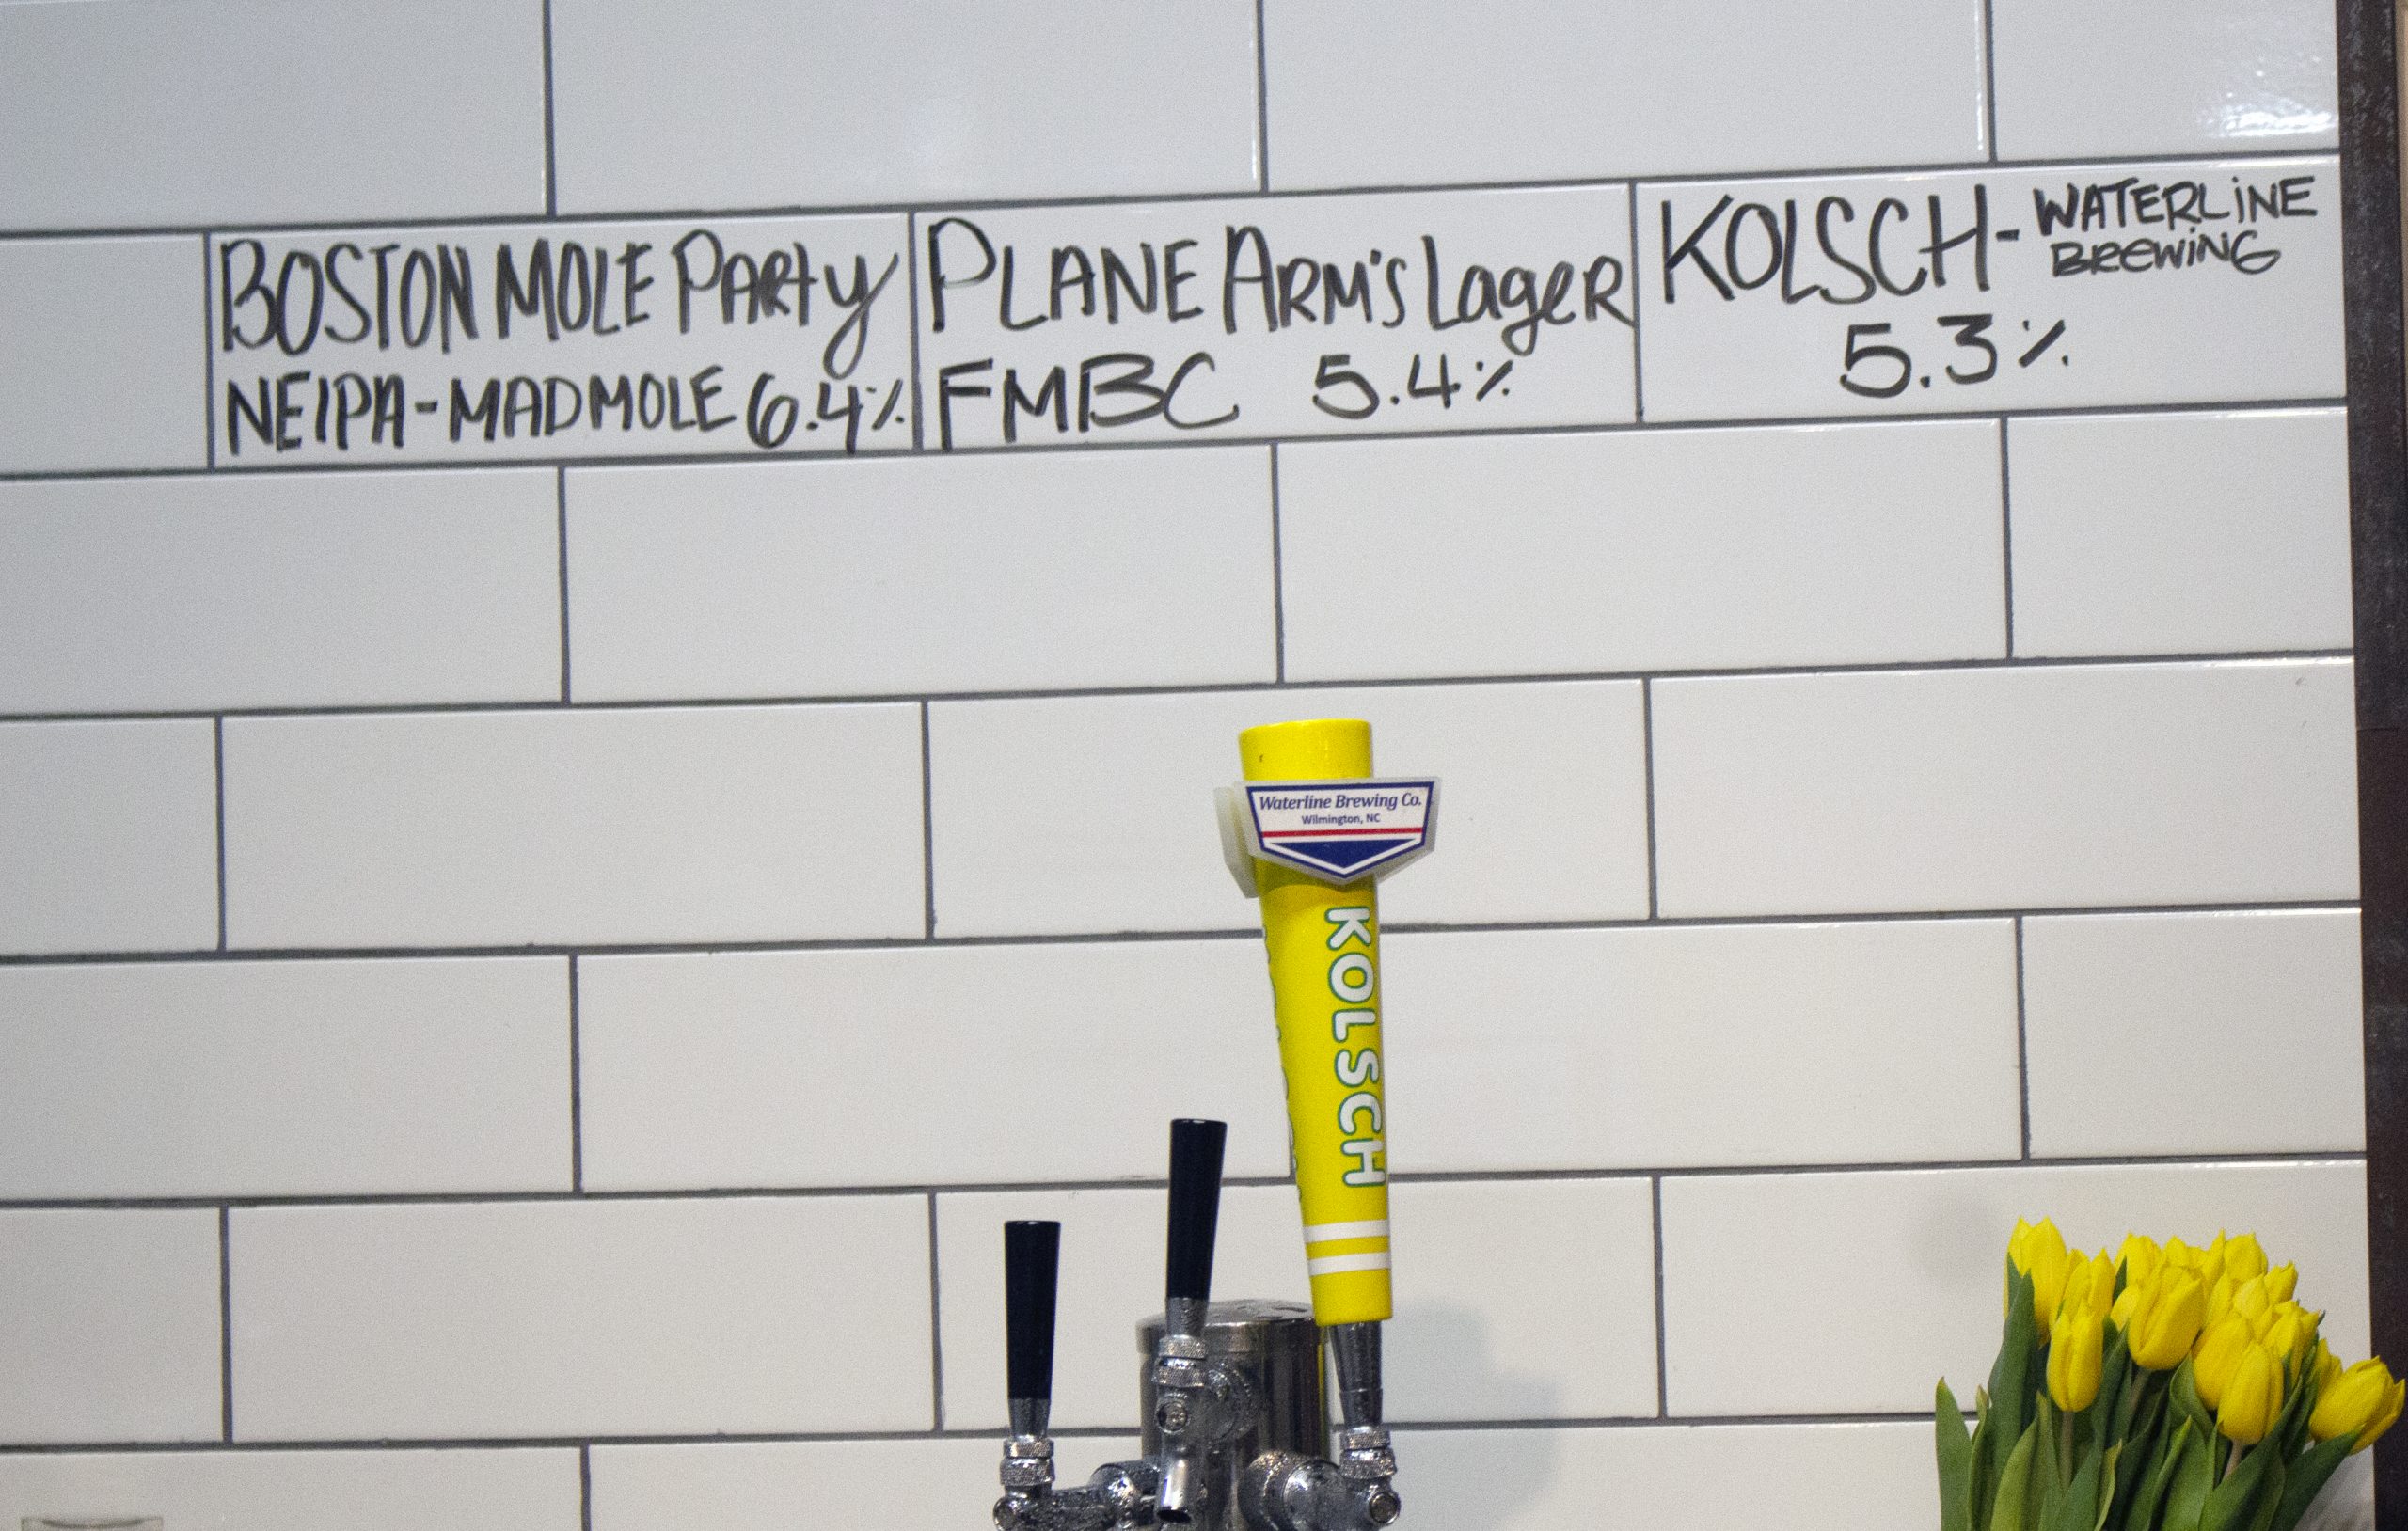 BOSTON MOLE PARTy
NEIPA-MADMOLE 6.4%
PLANE ARM'S LageR
FMBC 5.4%
KOLSCH-WATERLiNE
BREWiNG
5.3%
Waterline Brewing Co.
Wilmington, NC
KOLSCH